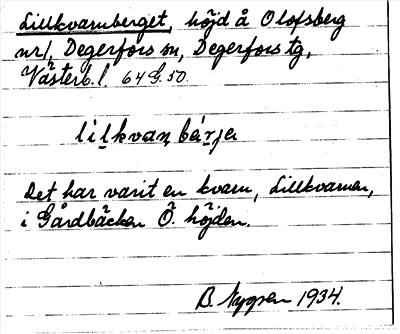 Lillkvarnberget, höjd å Olofsberg
nr 1, Degerfors sn, Degerfors tg,
Västerb. l. 64 G. 50.
lilkvaṇbärja
Det har varit en kvarn, Lillkvarnen,
i Gårdbäcken Ö. höjden.
B. Nygren 1934.